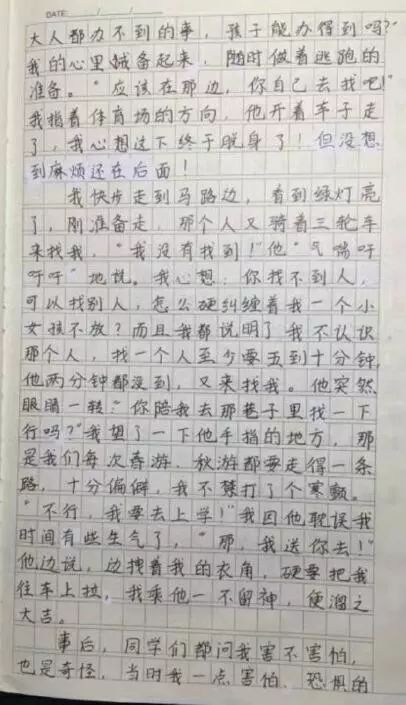 DATE
大人都办不到的事，孩子能办得到吗？
我的心里戒备起来，随时做着逃跑的
准备。"应该在那边，你自己去找吧！"
我指着体育场的方向，他开着车子走
了，我心想这下终于脱身了！但没想
到麻烦还在后面！
我快步走到马路边，看到绿灯亮
了，刚准备走，那个人又骑着三轮车
来找我，"我没有找到！"他"气喘吁
吁吁"地说。我心想：你找不到人，
可以找别人，怎么硬纠缠着我一个小
女孩不放？而且我都说明了我不认识
那个人，找一个人至少要五到十分钟，
他两分钟都没到，又来找我。他突然
眼睛一转："你陪我去那巷子里找一下
行吗？"我望了一下他手指的地方，那
是我们每次春游、秋游都要走得一条
路，十分偏僻，我不禁打了个寒颤。
"不行，我要去上学！"我因他耽误我
时间有些生气了，"那，我送你去！"
他边说，边拽着我的衣角，硬要把我
往车上拉，我乘他一不留神，便溜之
大吉。
事后，同学们都问我害不害怕，
也是奇怪，当时我一点害怕、恐惧的